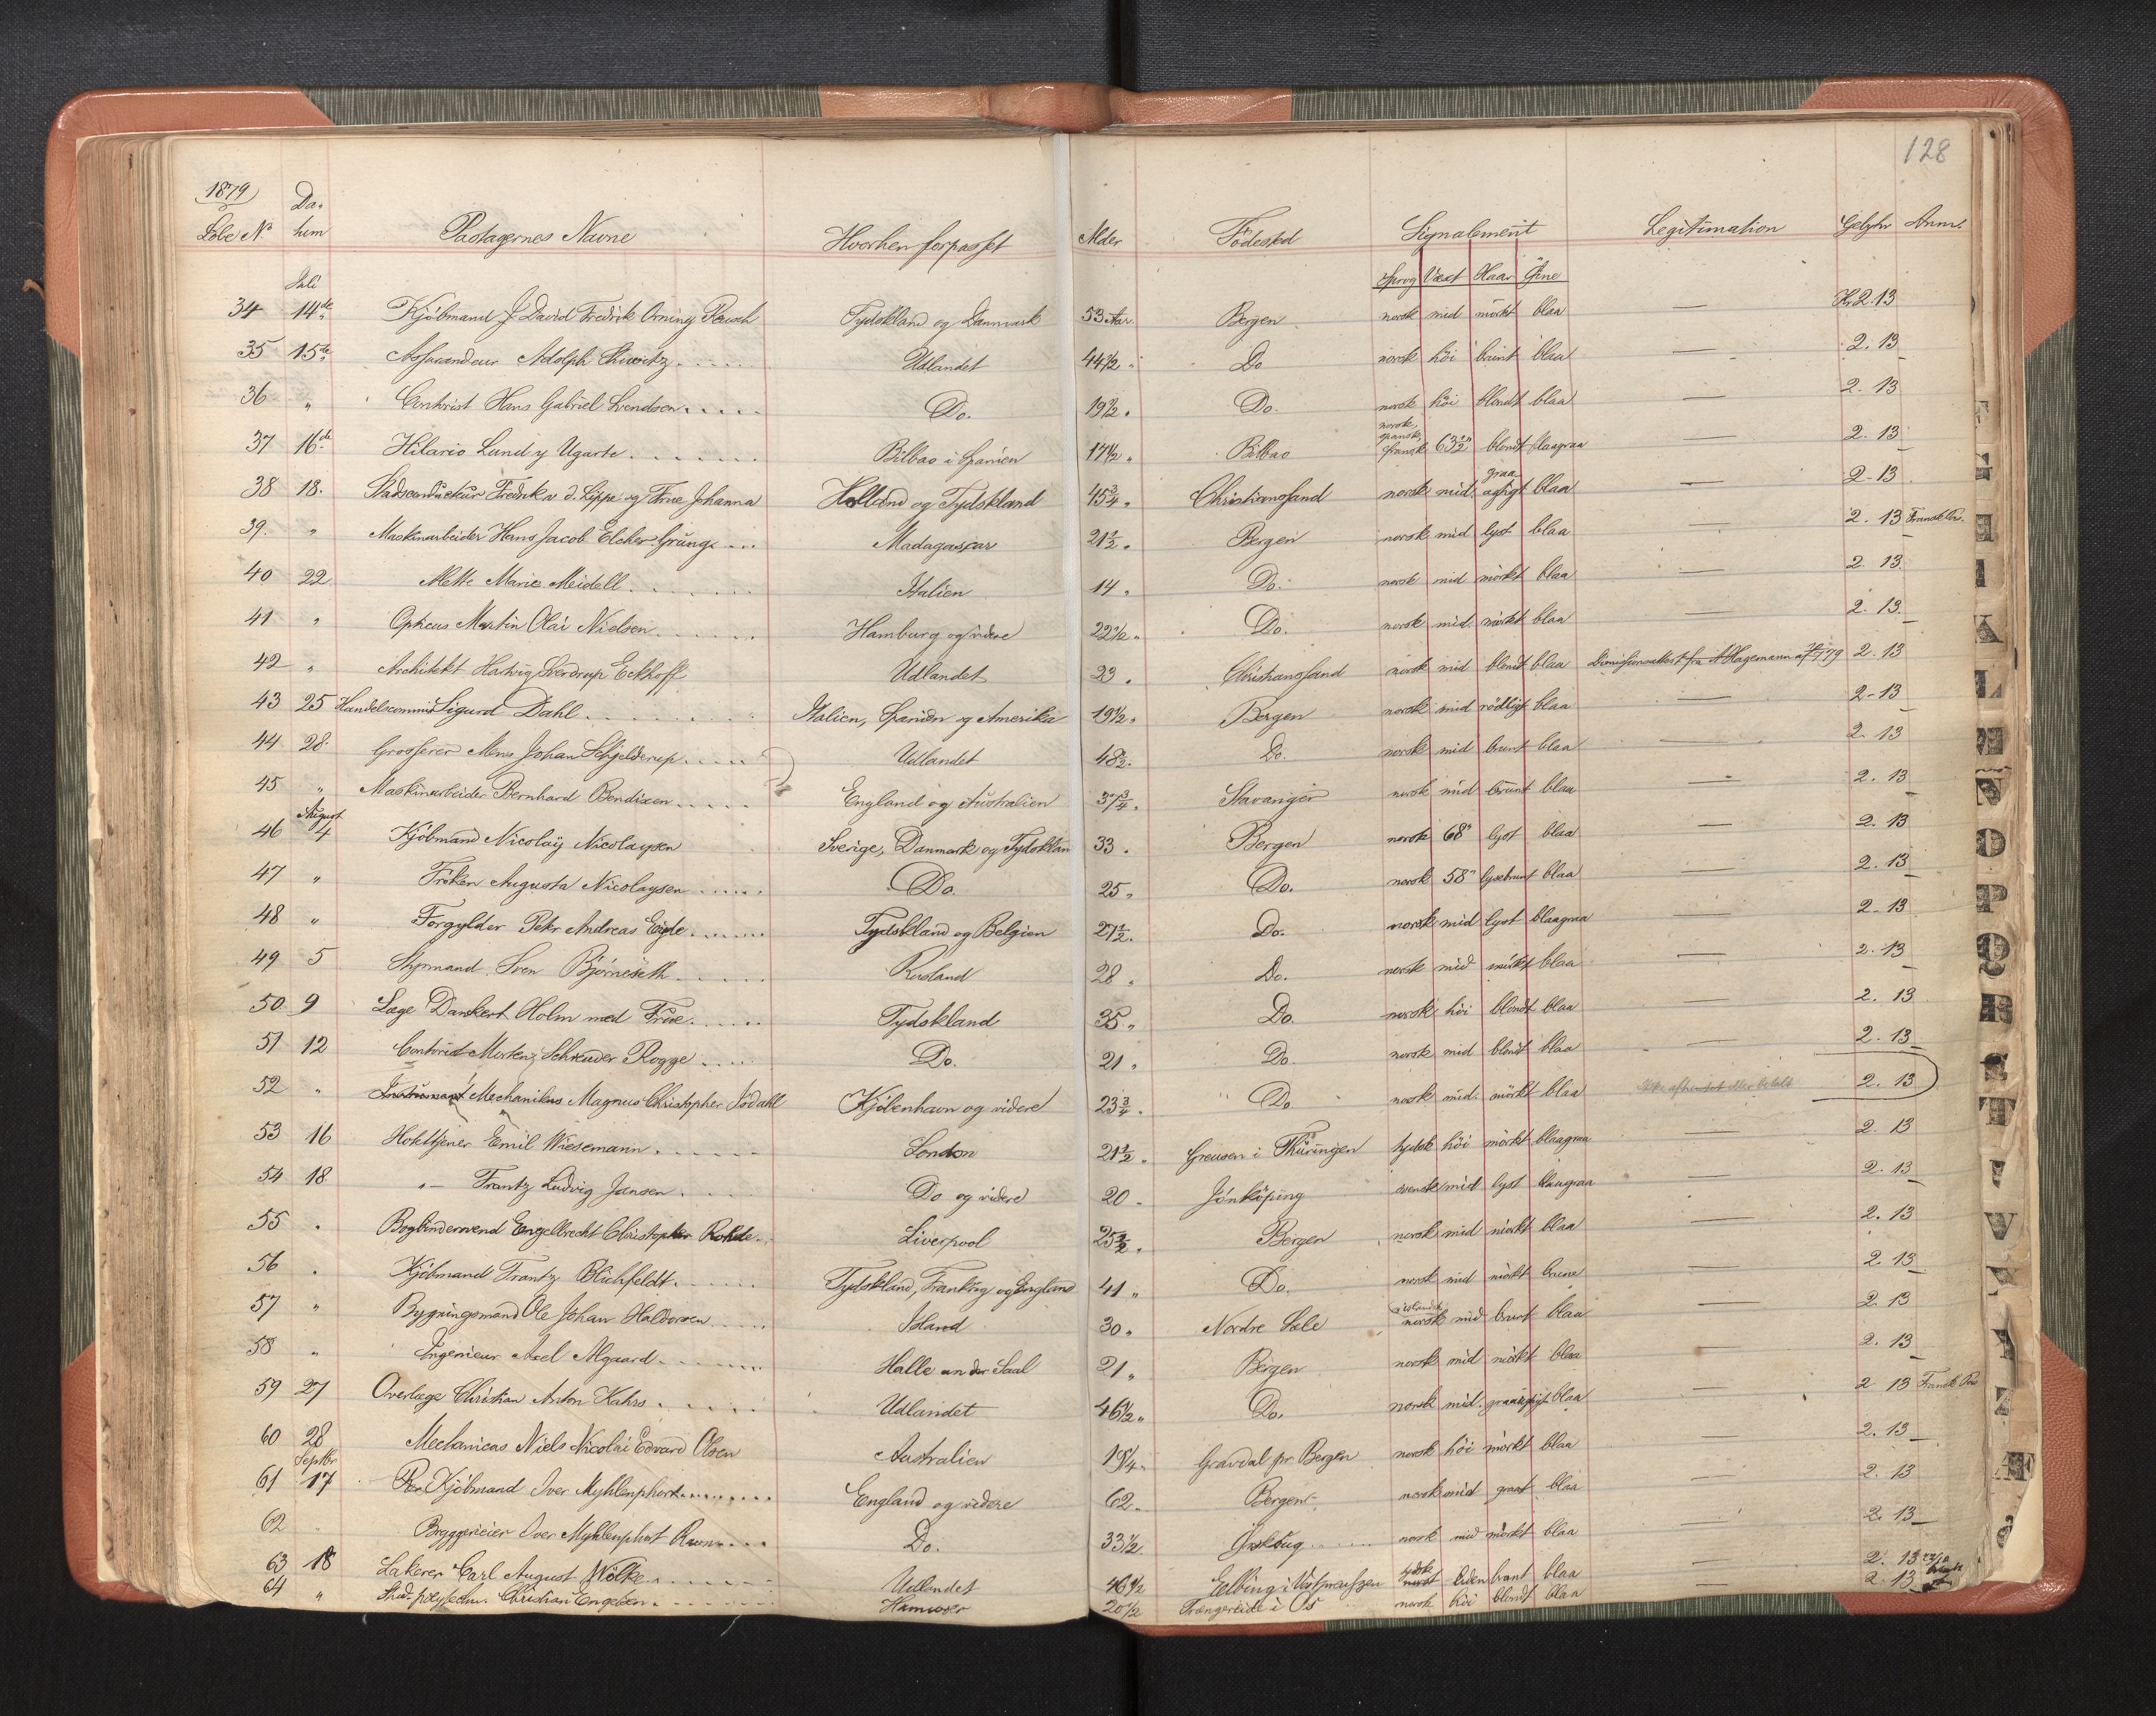 128
1879
Løbe No. Datum Passagernes Navne Hvorhen forpasset Alder Fødested Signalement Legitimation Gebyhr Anm.
Sprog Væxt Haar Øine
Juli
34 14de Kjøbmand J. David Fredrik Orning Rasch Tydskland og Danmark 53 Aar Bergen norsk mid mørkt blaa — Kr. 2.13
35 15de Assurandeur Adolph Udlandet 44½ " Do norsk høi brunt blaa — 2.13
36 " Contorist Hans Gabriel Svendsen Do. 19½ " Do. norsk høi blondt blaa — 2.13
37 16de Hilario Lund y Ugarte Bilbao i Spanien 17½ " Bilbao norsk, spansk, fransk 63½" blondt blaagraa — 2.13
38 18. Stadsconducteur Fredrik v. d. Lippe og Frue Johanna Holland og Tydskland 45¾ " Christianssand norsk mid graaagtigt blaa — 2.13
39. " Maskinarbeider Hans Jacob Elcher Grung Madagascar 21½ " Bergen norsk mid lyst blaa — 2.13
40 22 Mette Marie Meidell Italien 14 " Do. norsk mid mørkt blaa — 2.13
41 " Opticus Martin Olai Nielsen Hamburg og videre 22½ " Do. norsk mid. mørkt blaa — 2.13
42 " Architekt Hartvig Sverdrup Eckhoff Udlandet 23 " Christianssand norsk mid blondt blaa Dimissionsattest fra Hagemann 2.13
43 25 Handelscommis Sigurd Dahl Italien, Spanien og Amerika 19½ " Bergen norsk mid rødligt blaa — 2.13
44 28. Grosserer Mens Johan Schjelderup Udlandet 48½ Do. norsk mid brunt blaa — 2.13
45 " Maskinarbeider Bernhard Bendixen England og Australien 37¾ " Stavanger norsk mid brunt blaa — 2.13
August
46 4 Kjøbmand Nicolay Nicolaysen Sverige, Danmark og Tydsklan 33 " Bergen norsk 68" lyst blaa — 2.13
47 " Frøken Augusta Nicolaysen Do. 25 " Do. norsk 58" lysebrunt blaa — 2.13
48 " Forgylder Petr Andreas Eide Tydskland og Belgien 27½ " Do. norsk mid lyst blaagraa — 2.13
49 5 Styrmand Sven Bjørneseth Rusland 28 " Do. norsk mid mørkt blaa — 2.13
50 9 Læge Dankert Holm med Frue Tydskland 35 " Do. norsk høi blondt blaa — 2.13
51 12 Contorist Morten Schreuder Rogge Do. 21 " Do. norsk mid blondt blaa — 2.13
52 " Mechanikus Magnus Christopher Jødahl Kjøbenhavn og videre 23¾ " Do norsk mid. mørkt blaa Ikke afhentet eller betalt 2.13
53 16 Hoteltjener Emil Wiesemann London 21½ " Greusen i Thüringen tydsk høi mørkt blaagraa — 2.13
54 18 " — Frantz Ludvig Jansen Do og videre 20 " Jönköping svensk mid lyst blaagraa — 2.13
55 " Bogbindersvend Engelbrecht Christopher Rohde Liverpool 25½ " Bergen norsk mid mørkt blaa — 2.13
56 " Kjøbmand Frantz Blichfeldt Tydskland, Frankrig og England 41 " Do. norsk mid mørkt brune — 2.13
57 " Bygningsmand Ole Johan Haldorsen Island 30 " Nordre Sæle islandsk norsk mid brunt blaa — 2.13
58 " Ingenieur Axel Algaard Halle an der Saal 21 " Bergen norsk mid mørkt blaa — 2.13
59 27 Overlæge Christian Anton Kahrs Udlandet 46½ " Do. norsk mid. graaagtigt blaa — 2.13 Fransk
60 28 Mechanicus Niels Nicolai Edvard Olsen Australien 19¼ " Gravdal pr Bergen norsk høi mørkt blaa — 2.13
Septbr
61 17 Kjøbmand Iver Myhlenphort England og videre 62 " Bergen norsk mid graat blaa — 2.13
62 Bryggerieier Iver Myhlenphort Do. 33½ norsk mid mørkt blaa — 2.13
63 18 Lakerer Carl August Wölke Udlandet 46½ Elbing i tydsk liden brunt blaa 2.13
64 " Stud. polytechn. Christian Engelsen Hannover 20½ Trængereide i Os norsk høi blondt blaa 2.13